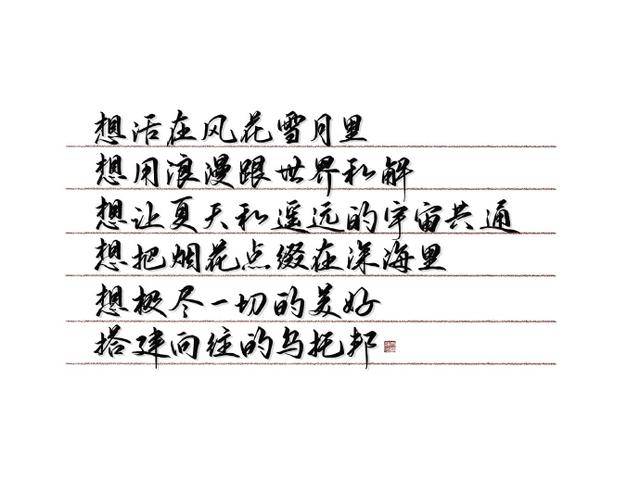 想活在风花雪月里
想用浪漫跟世界和解
想让夏天和遥远的宇宙共通
想把烟花点缀在深海里
想极尽一切的美好
搭建向往的乌托邦